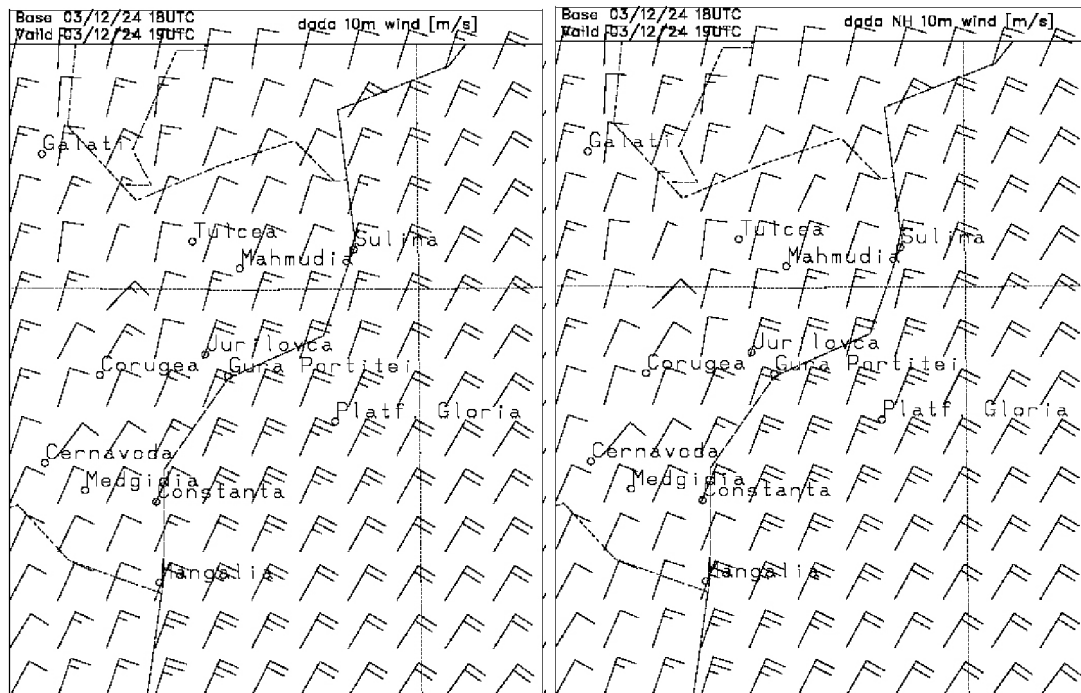 Base 03/12/24 18UTC
Valid 03/12/24 19UTC
dada 10m wind [m/s]
Galati
Tulcea
Sulina
Mahmudia
Jurilovca
Corugea
Gura Portitei
Platf Gloria
Cernavoda
Medgidia
Constanta
Mangalia
Base 03/12/24 18UTC
Valid 03/12/24 19UTC
dada NH 10m wind [m/s]
Galati
Tulcea
Sulina
Mahmudia
Jurilovca
Corugea
Gura Portitei
Platf Gloria
Cernavoda
Medgidia
Constanta
Mangalia